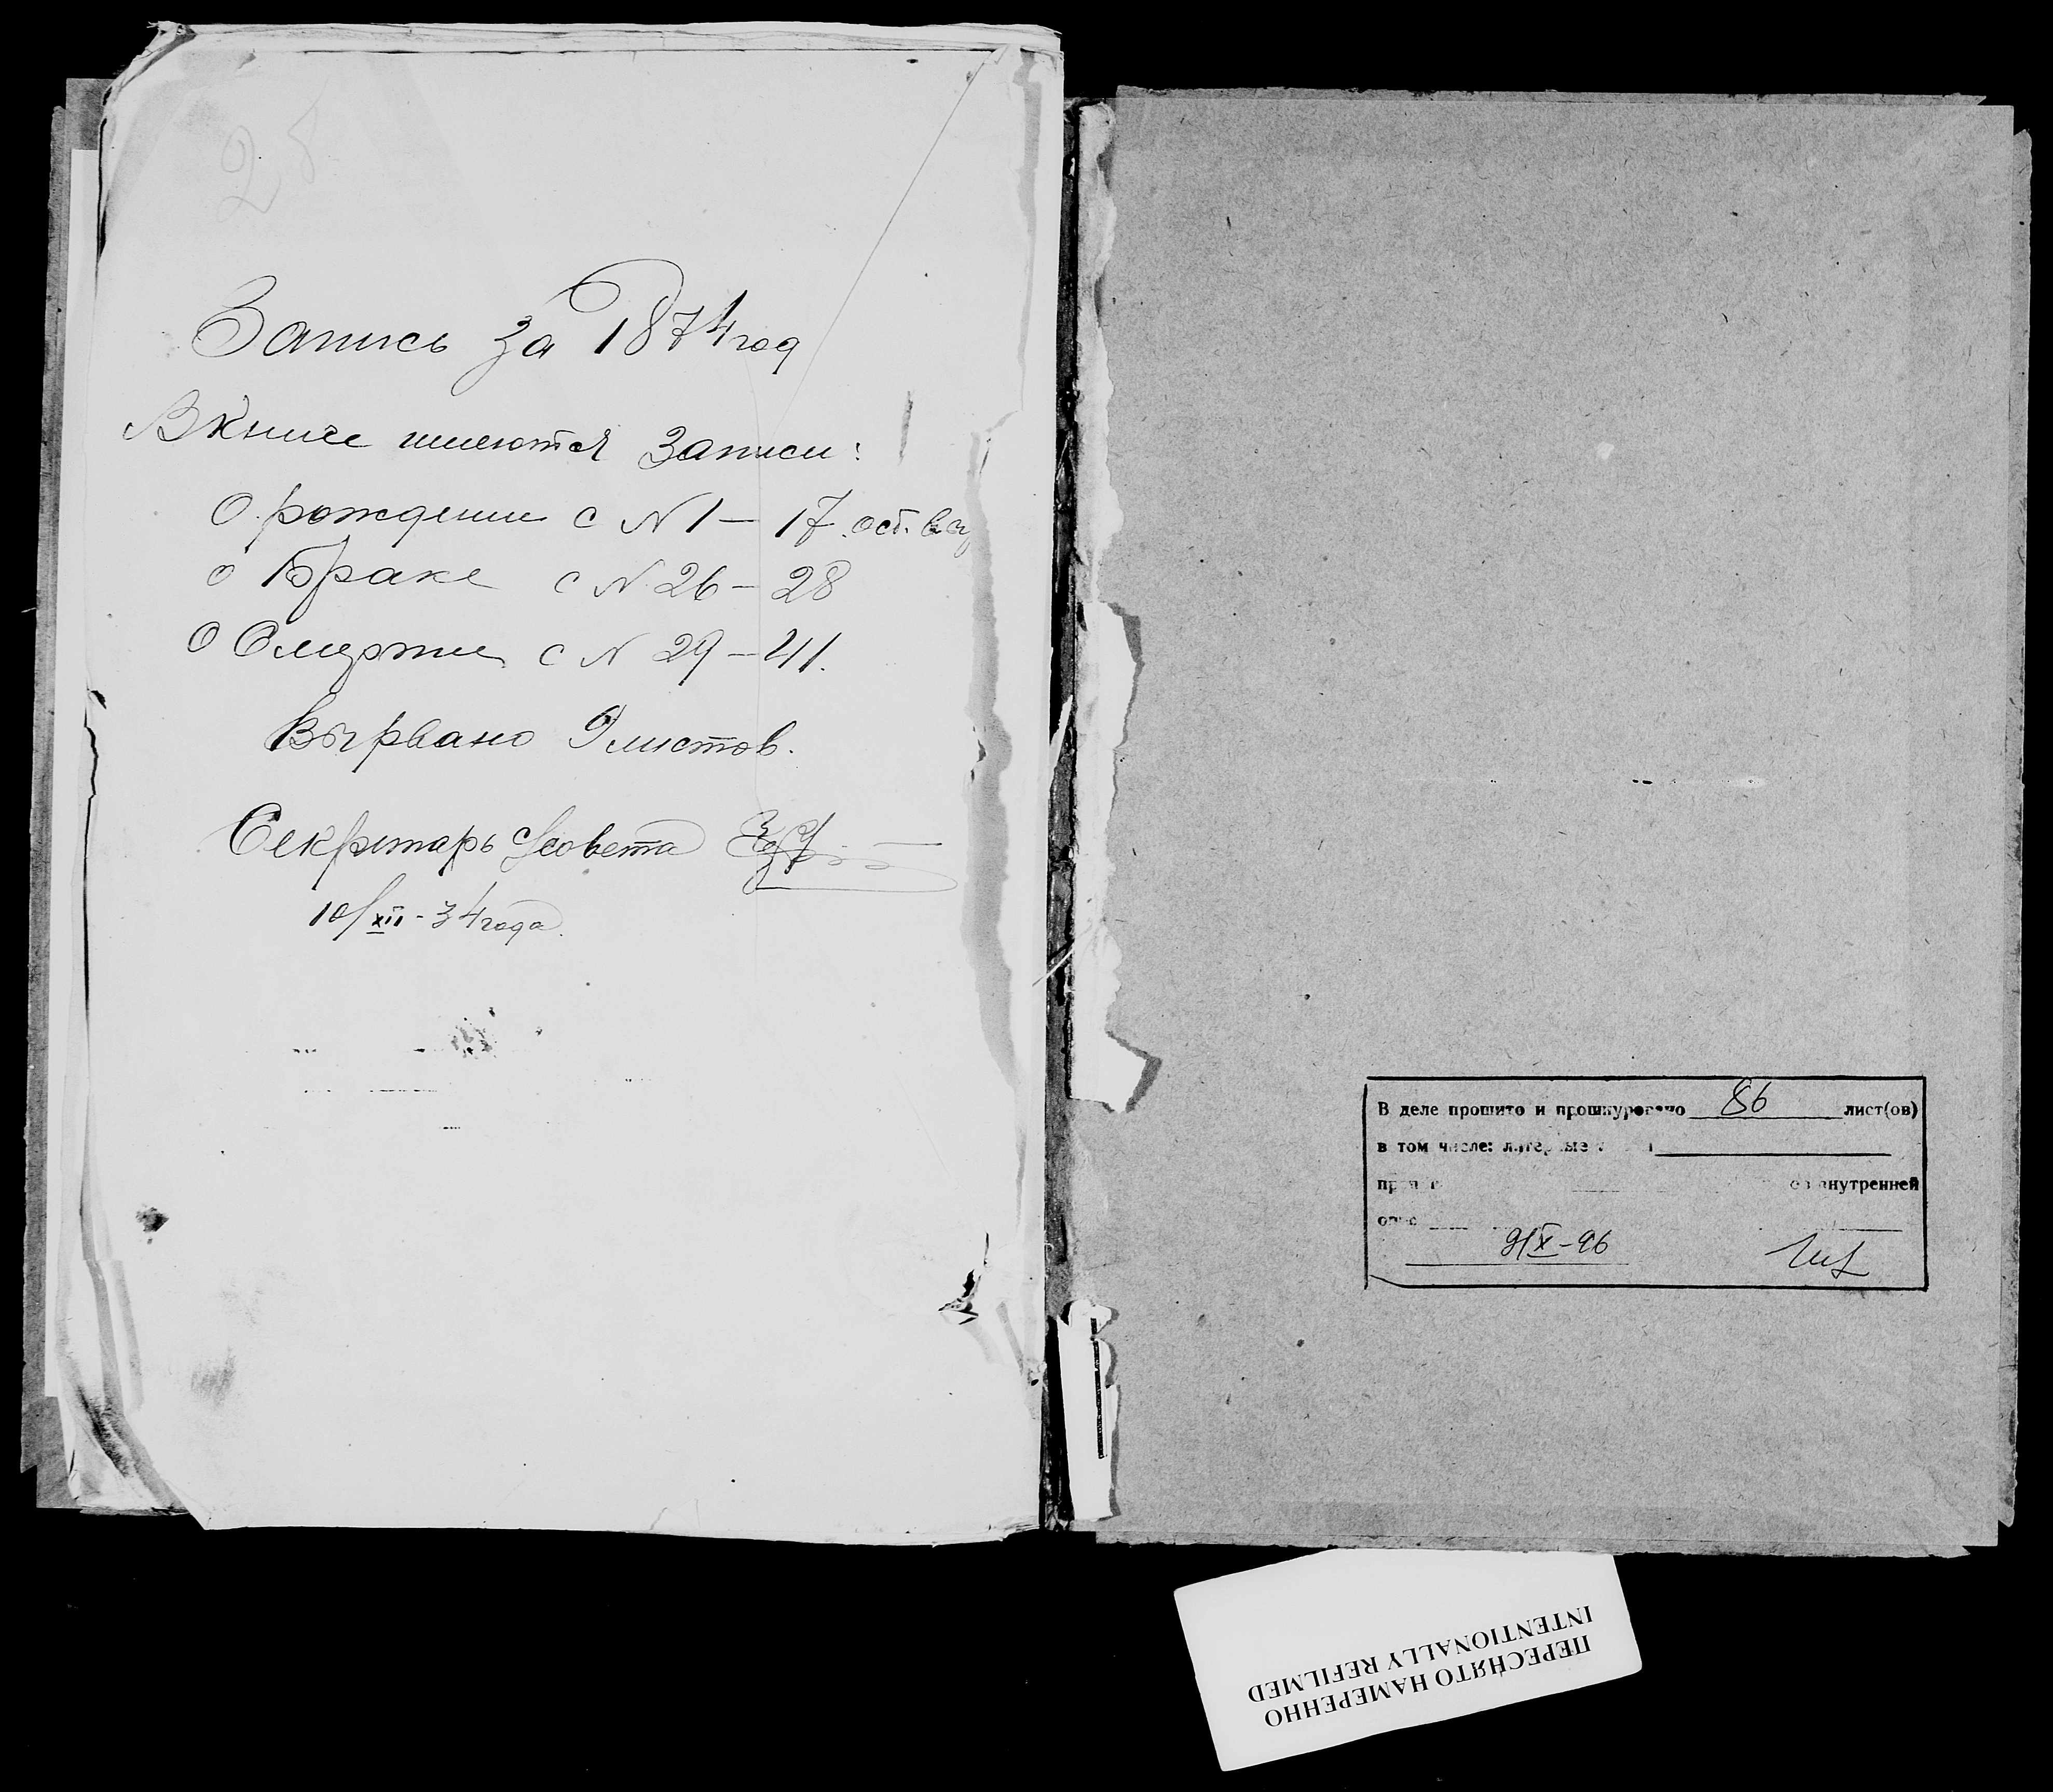 28
Запись за 1874 год
В книге имеются записи:
О рождении с N 1 – 17. ост.
О Браке с N 26 – 28
О Смерти с N 29 – 41.
Вырвано 9 листов.
Секретарь с/совета
10/XII - 34 года.
В деле прошито и прошнуровано 86 лист(ов)
в том числе: литерные
внутренней
9/X-96
ПЕРЕСНЯТО НАМЕРЕННО
INTENTIONALLY REFILMED